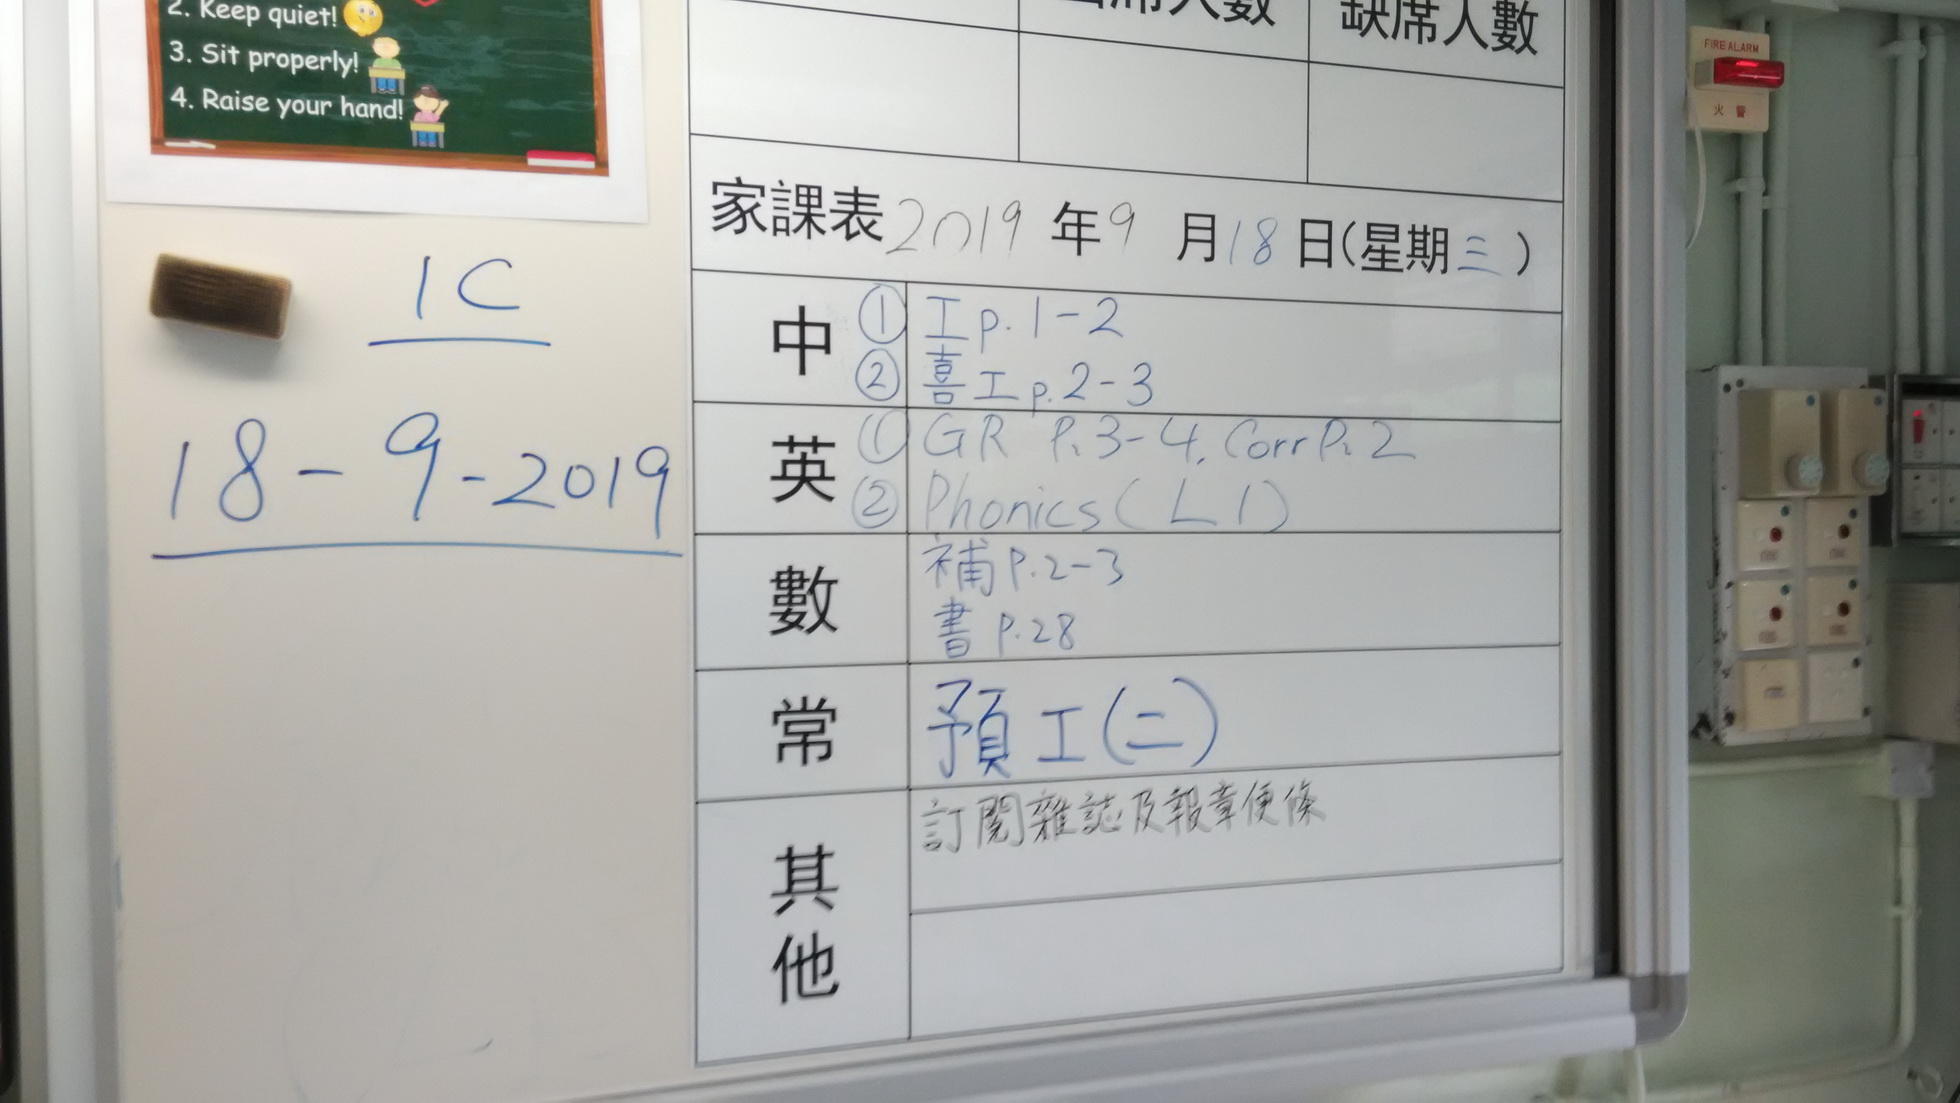 2. Keep quiet!
3. Sit properly!
4. Raise your hand!
出席人數 缺席人數
家課表 2019 年 9 月 18 日(星期三)
1C
18-9-2019
中 ① 工 p.1-2
② 喜工 p.2-3
英 ① GR P.3-4, Corr P.2
② Phonics (L1)
數 補 P.2-3
書 P.28
常 預工(二)
其他 訂閱雜誌及報章便條
FIRE ALARM
火警